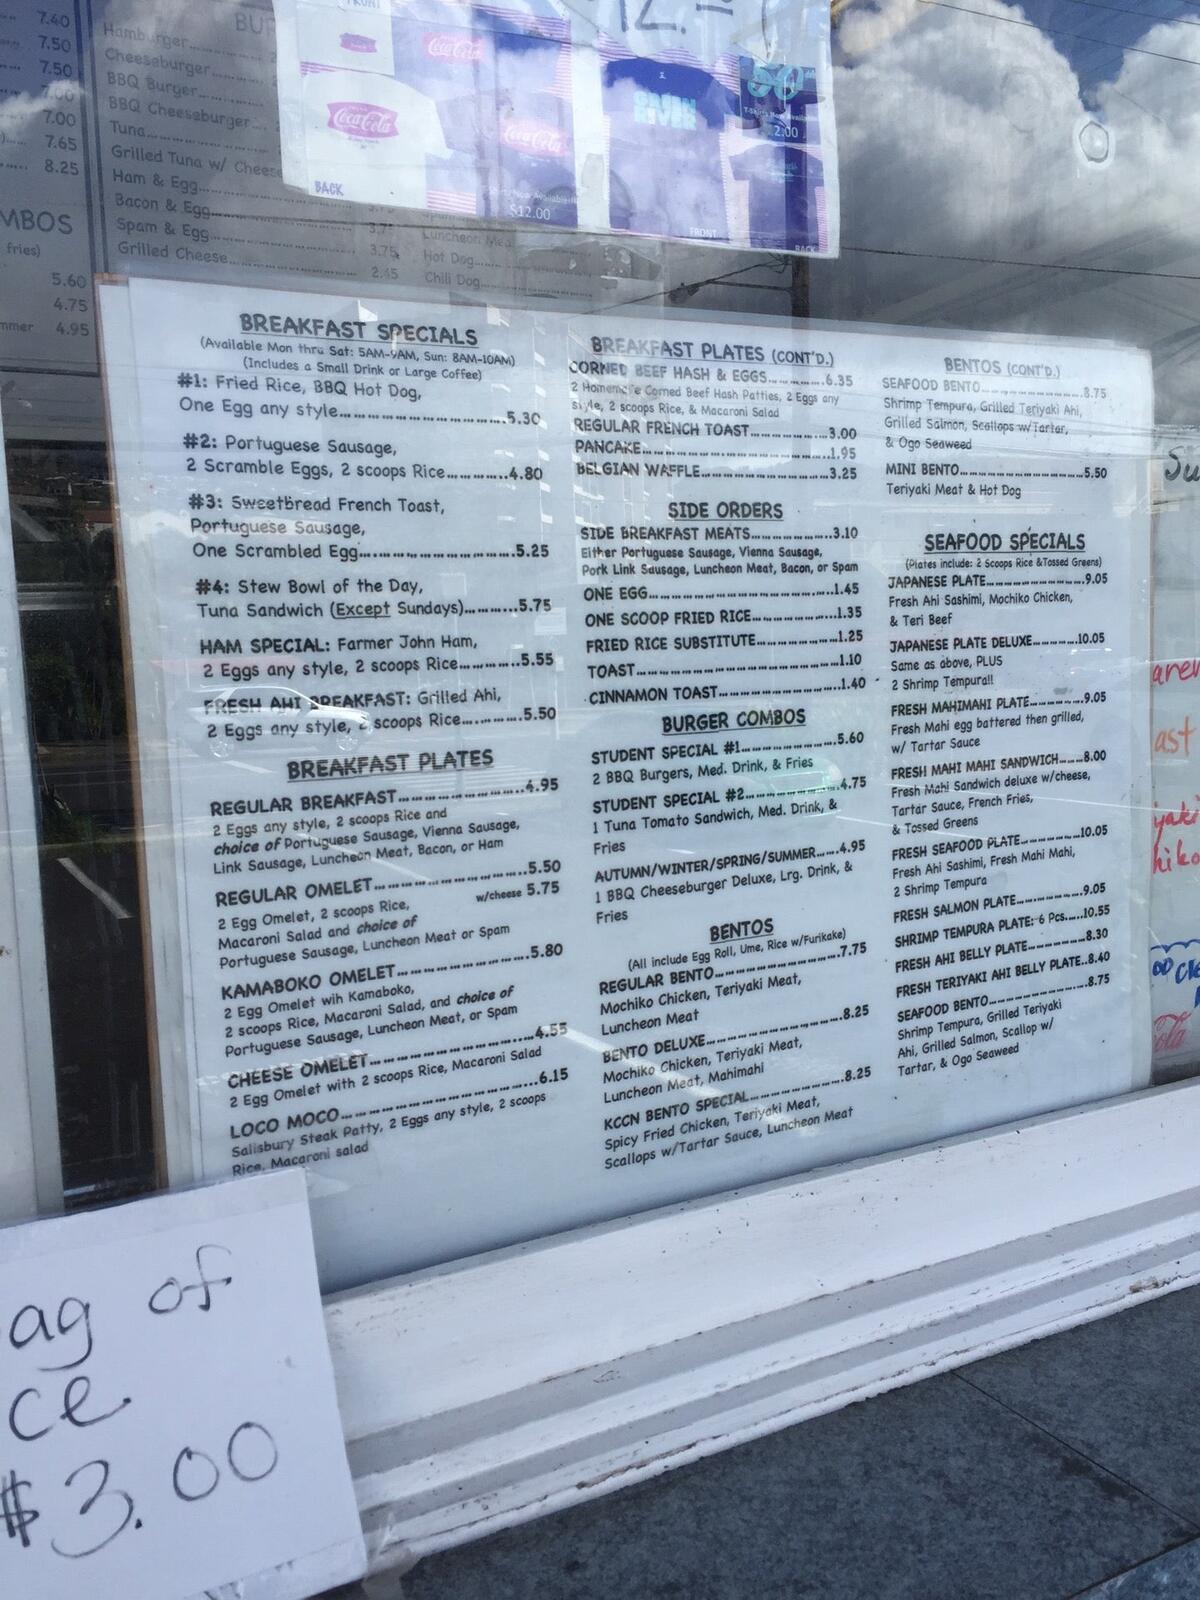 7.40
7.50
7.50
7.00
7.00
7.65
8.25
MBOS
fries)
5.60
4.75
4.95
Hamburger
Cheeseburger
BBQ Burger
BBQ Cheeseburger
Tuna
Grilled Tuna w/ Cheese
Ham & Egg
Bacon & Egg
Spam & Egg 3.75
Grilled Cheese 2.45
Luncheon Mea
Hot Dog
Chili Dog
Coca-Cola
Coca-Cola
Coca-Cola
BACK
$12.00
FRONT
BACK
BREAKFAST SPECIALS
(Available Mon thru Sat: 5AM-9AM, Sun: 8AM-10AM)
(Includes a Small Drink or Large Coffee)
#1: Fried Rice, BBQ Hot Dog,
One Egg any style 5.30
#2: Portuguese Sausage,
2 Scramble Eggs, 2 scoops Rice 4.80
#3: Sweetbread French Toast,
Portuguese Sausage,
One Scrambled Egg 5.25
#4: Stew Bowl of the Day,
Tuna Sandwich (Except Sundays) 5.75
HAM SPECIAL: Farmer John Ham,
2 Eggs any style, 2 scoops Rice 5.55
FRESH AHI BREAKFAST: Grilled Ahi,
2 Eggs any style, 2 scoops Rice 5.50
BREAKFAST PLATES
REGULAR BREAKFAST 4.95
2 Eggs any style, 2 scoops Rice and
choice of Portuguese Sausage, Vienna Sausage,
Link Sausage, Luncheon Meat, Bacon, or Ham
REGULAR OMELET 5.50
w/cheese 5.75
2 Egg Omelet, 2 scoops Rice,
Macaroni Salad and choice of
Portuguese Sausage, Luncheon Meat or Spam
KAMABOKO OMELET 5.80
2 Egg Omelet wih Kamaboko,
2 scoops Rice, Macaroni Salad, and choice of
Portuguese Sausage, Luncheon Meat, or Spam
CHEESE OMELET 4.55
2 Egg Omelet with 2 scoops Rice, Macaroni Salad
LOCO MOCO 6.15
Salisbury Steak Patty, 2 Eggs any style, 2 scoops
Rice, Macaroni salad
BREAKFAST PLATES (CONT'D.)
CORNED BEEF HASH & EGGS 6.35
2 Homemade Corned Beef Hash Patties, 2 Eggs any
style, 2 scoops Rice, & Macaroni Salad
REGULAR FRENCH TOAST 3.00
PANCAKE 1.95
BELGIAN WAFFLE 3.25
SIDE ORDERS
SIDE BREAKFAST MEATS 3.10
Either Portuguese Sausage, Vienna Sausage,
Pork Link Sausage, Luncheon Meat, Bacon, or Spam
ONE EGG 1.45
ONE SCOOP FRIED RICE 1.35
FRIED RICE SUBSTITUTE 1.25
TOAST 1.10
CINNAMON TOAST 1.40
BURGER COMBOS
STUDENT SPECIAL #1 5.60
2 BBQ Burgers, Med. Drink, & Fries
STUDENT SPECIAL #2 4.75
1 Tuna Tomato Sandwich, Med. Drink, &
Fries
AUTUMN/WINTER/SPRING/SUMMER 4.95
1 BBQ Cheeseburger Deluxe, Lrg. Drink, &
Fries
BENTOS
(All include Egg Roll, Ume, Rice w/Furikake)
REGULAR BENTO 7.75
Mochiko Chicken, Teriyaki Meat,
Luncheon Meat
BENTO DELUXE 8.25
Mochiko Chicken, Teriyaki Meat,
Luncheon Meat, Mahimahi
KCCN BENTO SPECIAL 8.25
Spicy Fried Chicken, Teriyaki Meat,
Scallops w/Tartar Sauce, Luncheon Meat
BENTOS (CONT'D.)
SEAFOOD BENTO 8.75
Shrimp Tempura, Grilled Teriyaki Ahi,
Grilled Salmon, Scallops w/Tartar,
& Ogo Seaweed
MINI BENTO 5.50
Teriyaki Meat & Hot Dog
SEAFOOD SPECIALS
(Plates include: 2 Scoops Rice &Tossed Greens)
JAPANESE PLATE 9.05
Fresh Ahi Sashimi, Mochiko Chicken,
& Teri Beef
JAPANESE PLATE DELUXE 10.05
Same as above, PLUS
2 Shrimp Tempura!!
FRESH MAHIMAHI PLATE 9.05
Fresh Mahi egg battered then grilled,
w/ Tartar Sauce
FRESH MAHI MAHI SANDWICH 8.00
Fresh Mahi Sandwich deluxe w/cheese,
Tartar Sauce, French Fries,
& Tossed Greens
FRESH SEAFOOD PLATE 10.05
Fresh Ahi Sashimi, Fresh Mahi Mahi,
2 Shrimp Tempura
FRESH SALMON PLATE 9.05
SHRIMP TEMPURA PLATE: 6 Pcs 10.55
FRESH AHI BELLY PLATE 8.30
FRESH TERIYAKI AHI BELLY PLATE 8.40
SEAFOOD BENTO 8.75
Shrimp Tempura, Grilled Teriyaki
Ahi, Grilled Salmon, Scallop w/
Tartar, & Ogo Seaweed
ag of
ce
$3.00